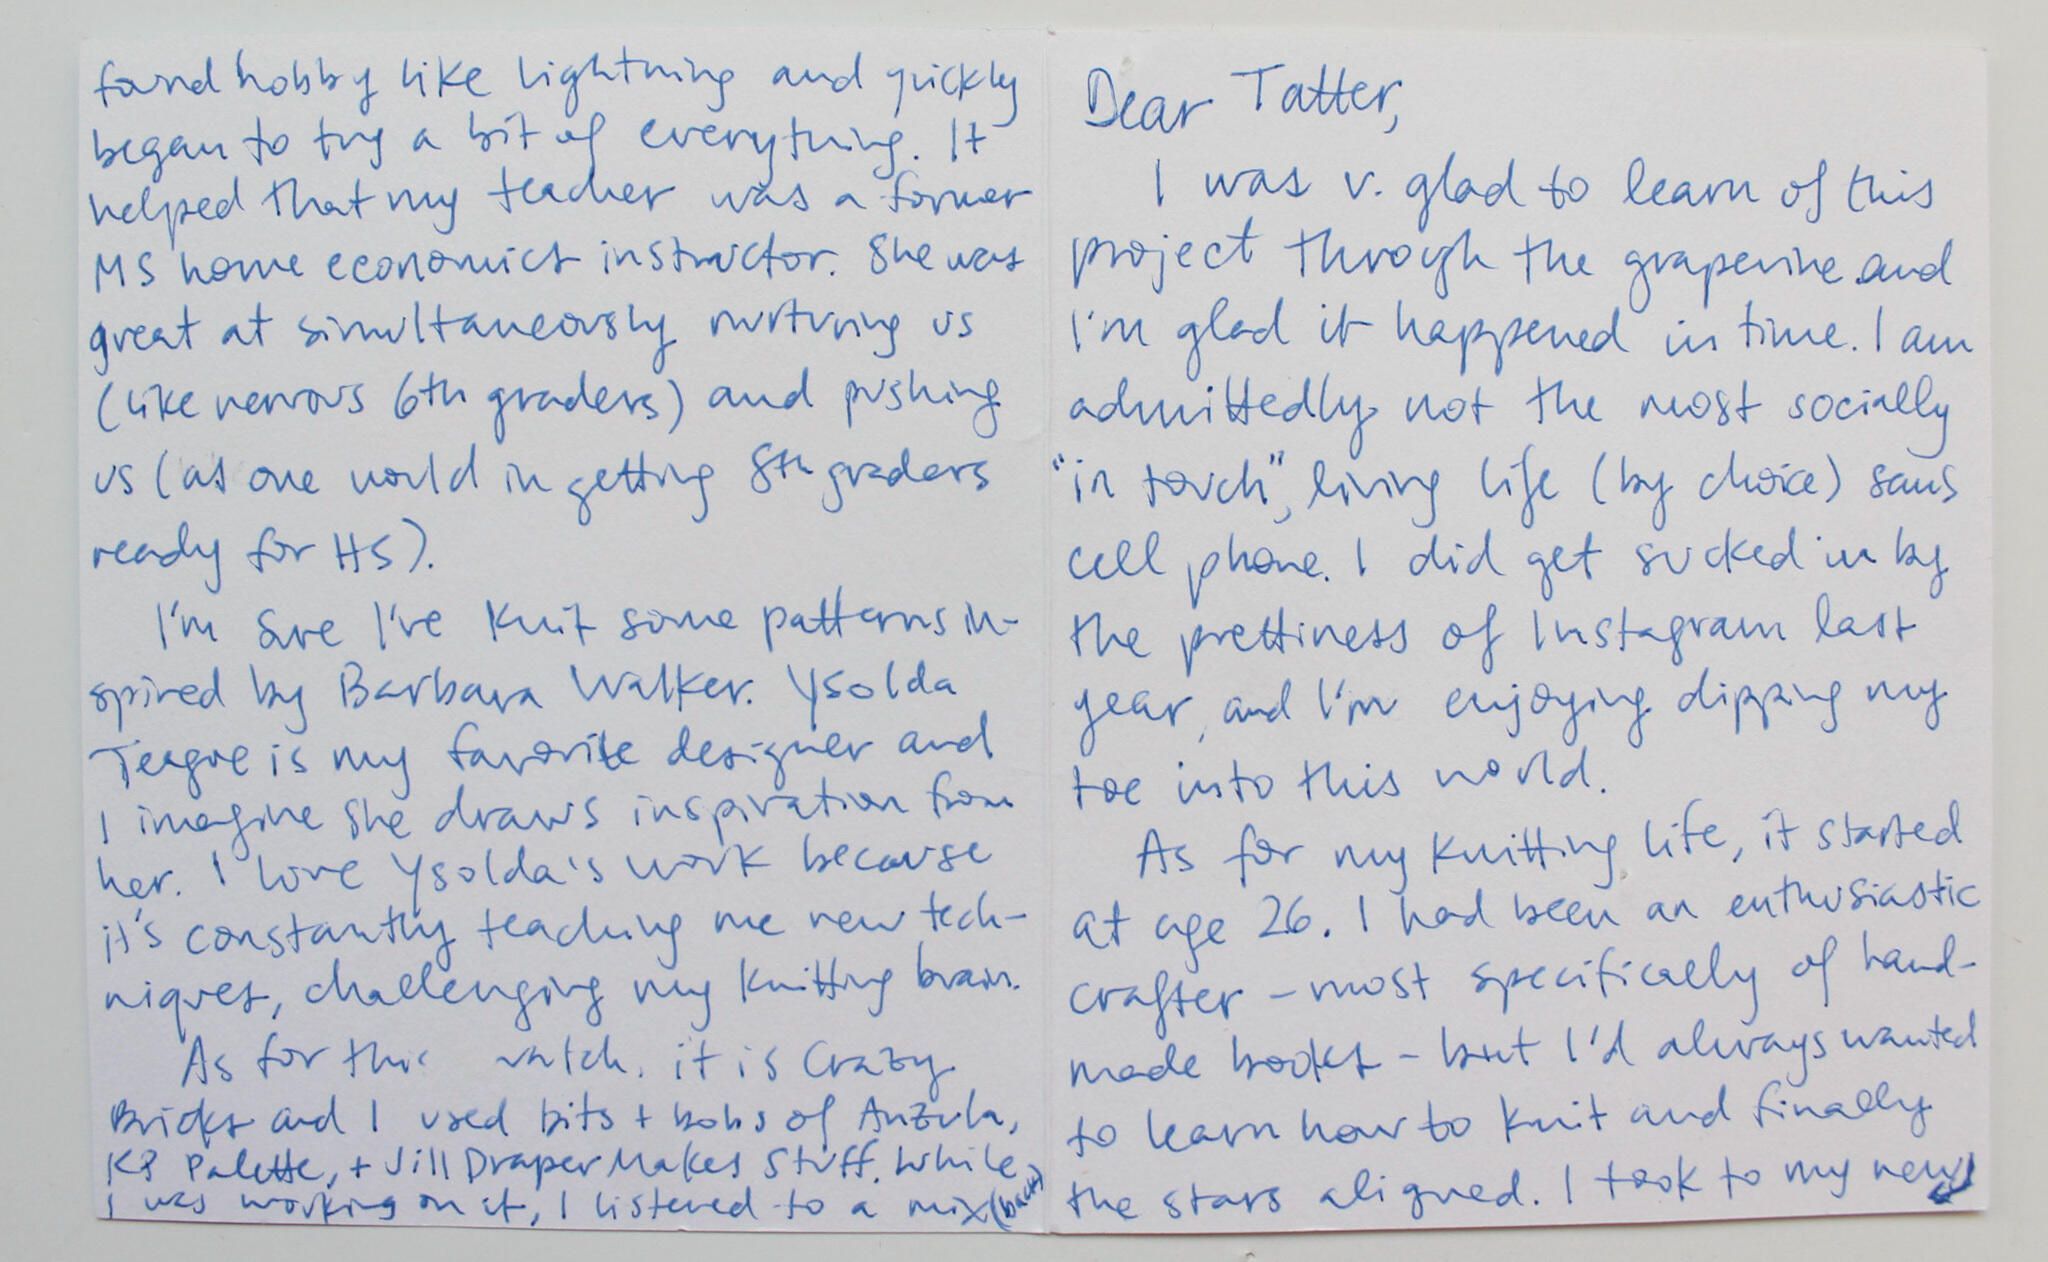 Dear Tatter,
I was v. glad to learn of this
project through the grapevine and
I'm glad it happened in time. I am
admittedly not the most socially
"in touch", living life (by choice) sans
cell phone. I did get sucked in by
the prettiness of Instagram last
year, and I'm enjoying dipping my
toe into this world.
As for my knitting life, it started
at age 26. I had been an enthusiastic
crafter – most specifically of hand-
made books – but I'd always wanted
to learn how to knit and finally
the stars aligned. I took to my new
found hobby like lightning and quickly
began to try a bit of everything. It
helped that my teacher was a former
MS home economics instructor. She was
great at simultaneously nurturing us
(like nervous 6th graders) and pushing
us (as one would in getting 8th graders
ready for HS).
I'm sure I've knit some patterns in-
spired by Barbara Walker. Ysolda
Teague is my favorite designer and
I imagine she draws inspiration from
her. I love Ysolda's work because
it's constantly teaching me new tech-
niques, challenging my knitting brain.
As for this swatch, it is Crazy
Bricks and I used bits + bobs of Anzula,
KP Palette, + Jill Draper Makes Stuff. While
I was working on it, I listened to a mix (back)